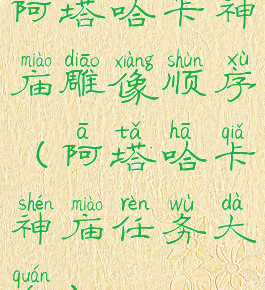 阿塔哈卡神
miào diāo xiàng shùn xù
庙雕像顺序
ā tǎ hā qiǎ
（阿塔哈卡
shén miào rèn wù dà
神庙任务大
quán